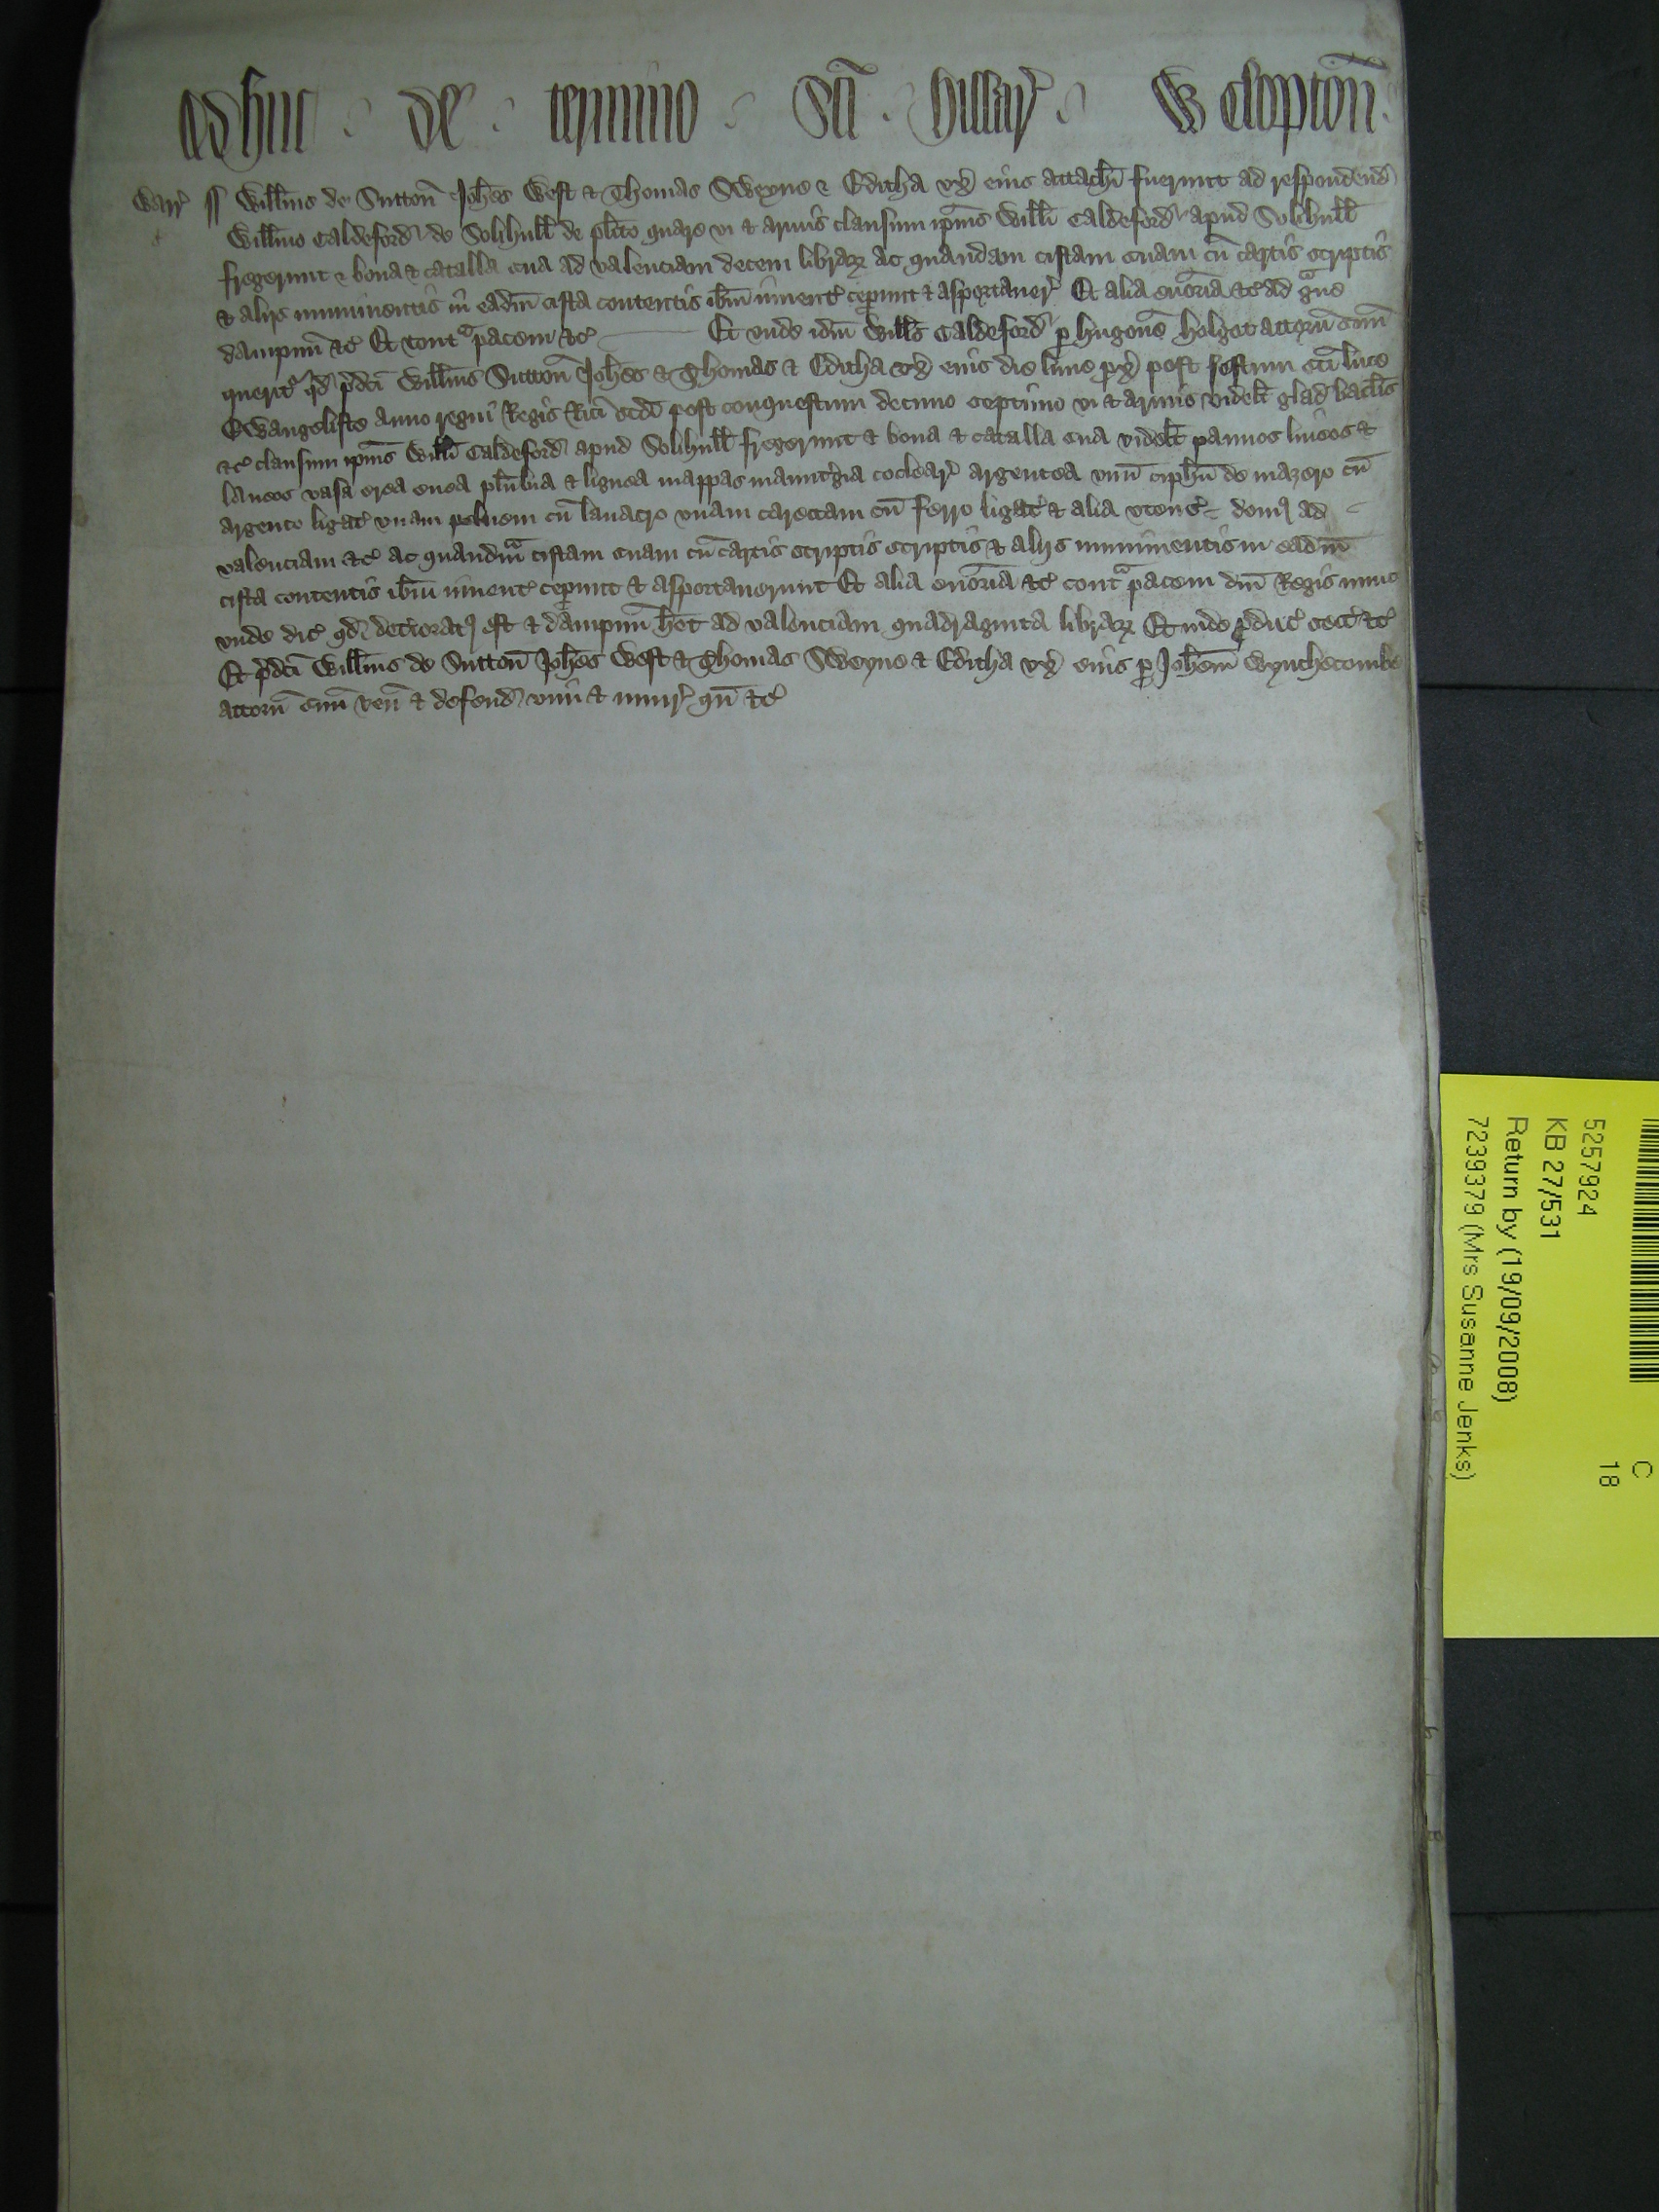 Adhuc de termino Sci Hillar W Clopton
Warr Willms de Sutton Johes West & Thomas Sweyne & Editha ux eius attachi fuerunt ad respondend
Willmo Caldeford de Solihull de plito quare vi & armis clausum ipius Willi Caldeford apud Solihull
fregerunt & bona & catalla sua ad valenciam decem librar ac quandam cistam suam cu cartis scriptis
& alijs munimentis in eadm cista contentis ibm invent ceperunt & asportaver Et alia enormia &c ad gve
dampnu &c Et contra pacem &c Et unde idm Wills Caldeford p Hugone Holget attorn suu
querit qd pdci Willms Sutton Johes & Thomas & Editha ux eius die lune px post festum sci luce
Ewangeliste anno regni Regis Rici scdi post conquestum decimo septimo vi & armis videlt glad baclis
&c clausum ipius Willi Caldeford apud Solihull fregerunt & bona & catalla sua videlt pannos lineos &
laneos vasa erea enea plumbia & lignea mappas manutgia coclear argentea unu ciphu de mazero cu
argento ligat unam peluem cu lavacro unam carectam cu ferro ligat & alia utensi domus ad
valenciam &c ac quandam cistam suam cu cartis scriptis scriptis & alijs munimentis in eadm
cista contentis ibm invent ceperunt & asportaverunt Et alia enormia &c contra pacem dni Regis nunc
unde dic qd deteriorat est & dampnu het ad valenciam quadraginta librar Et inde pduc sect &c
Et pdci Willms de Sutton Johes West & Thomas Sweyne & Editha ux eius p Johem Wynchecombe
attorn suu ven & defend vim & iniur qn &c
5257924
KB 27/531
Return by (19/09/2008)
7239379 (Mrs Susanne Jenks)
C
18